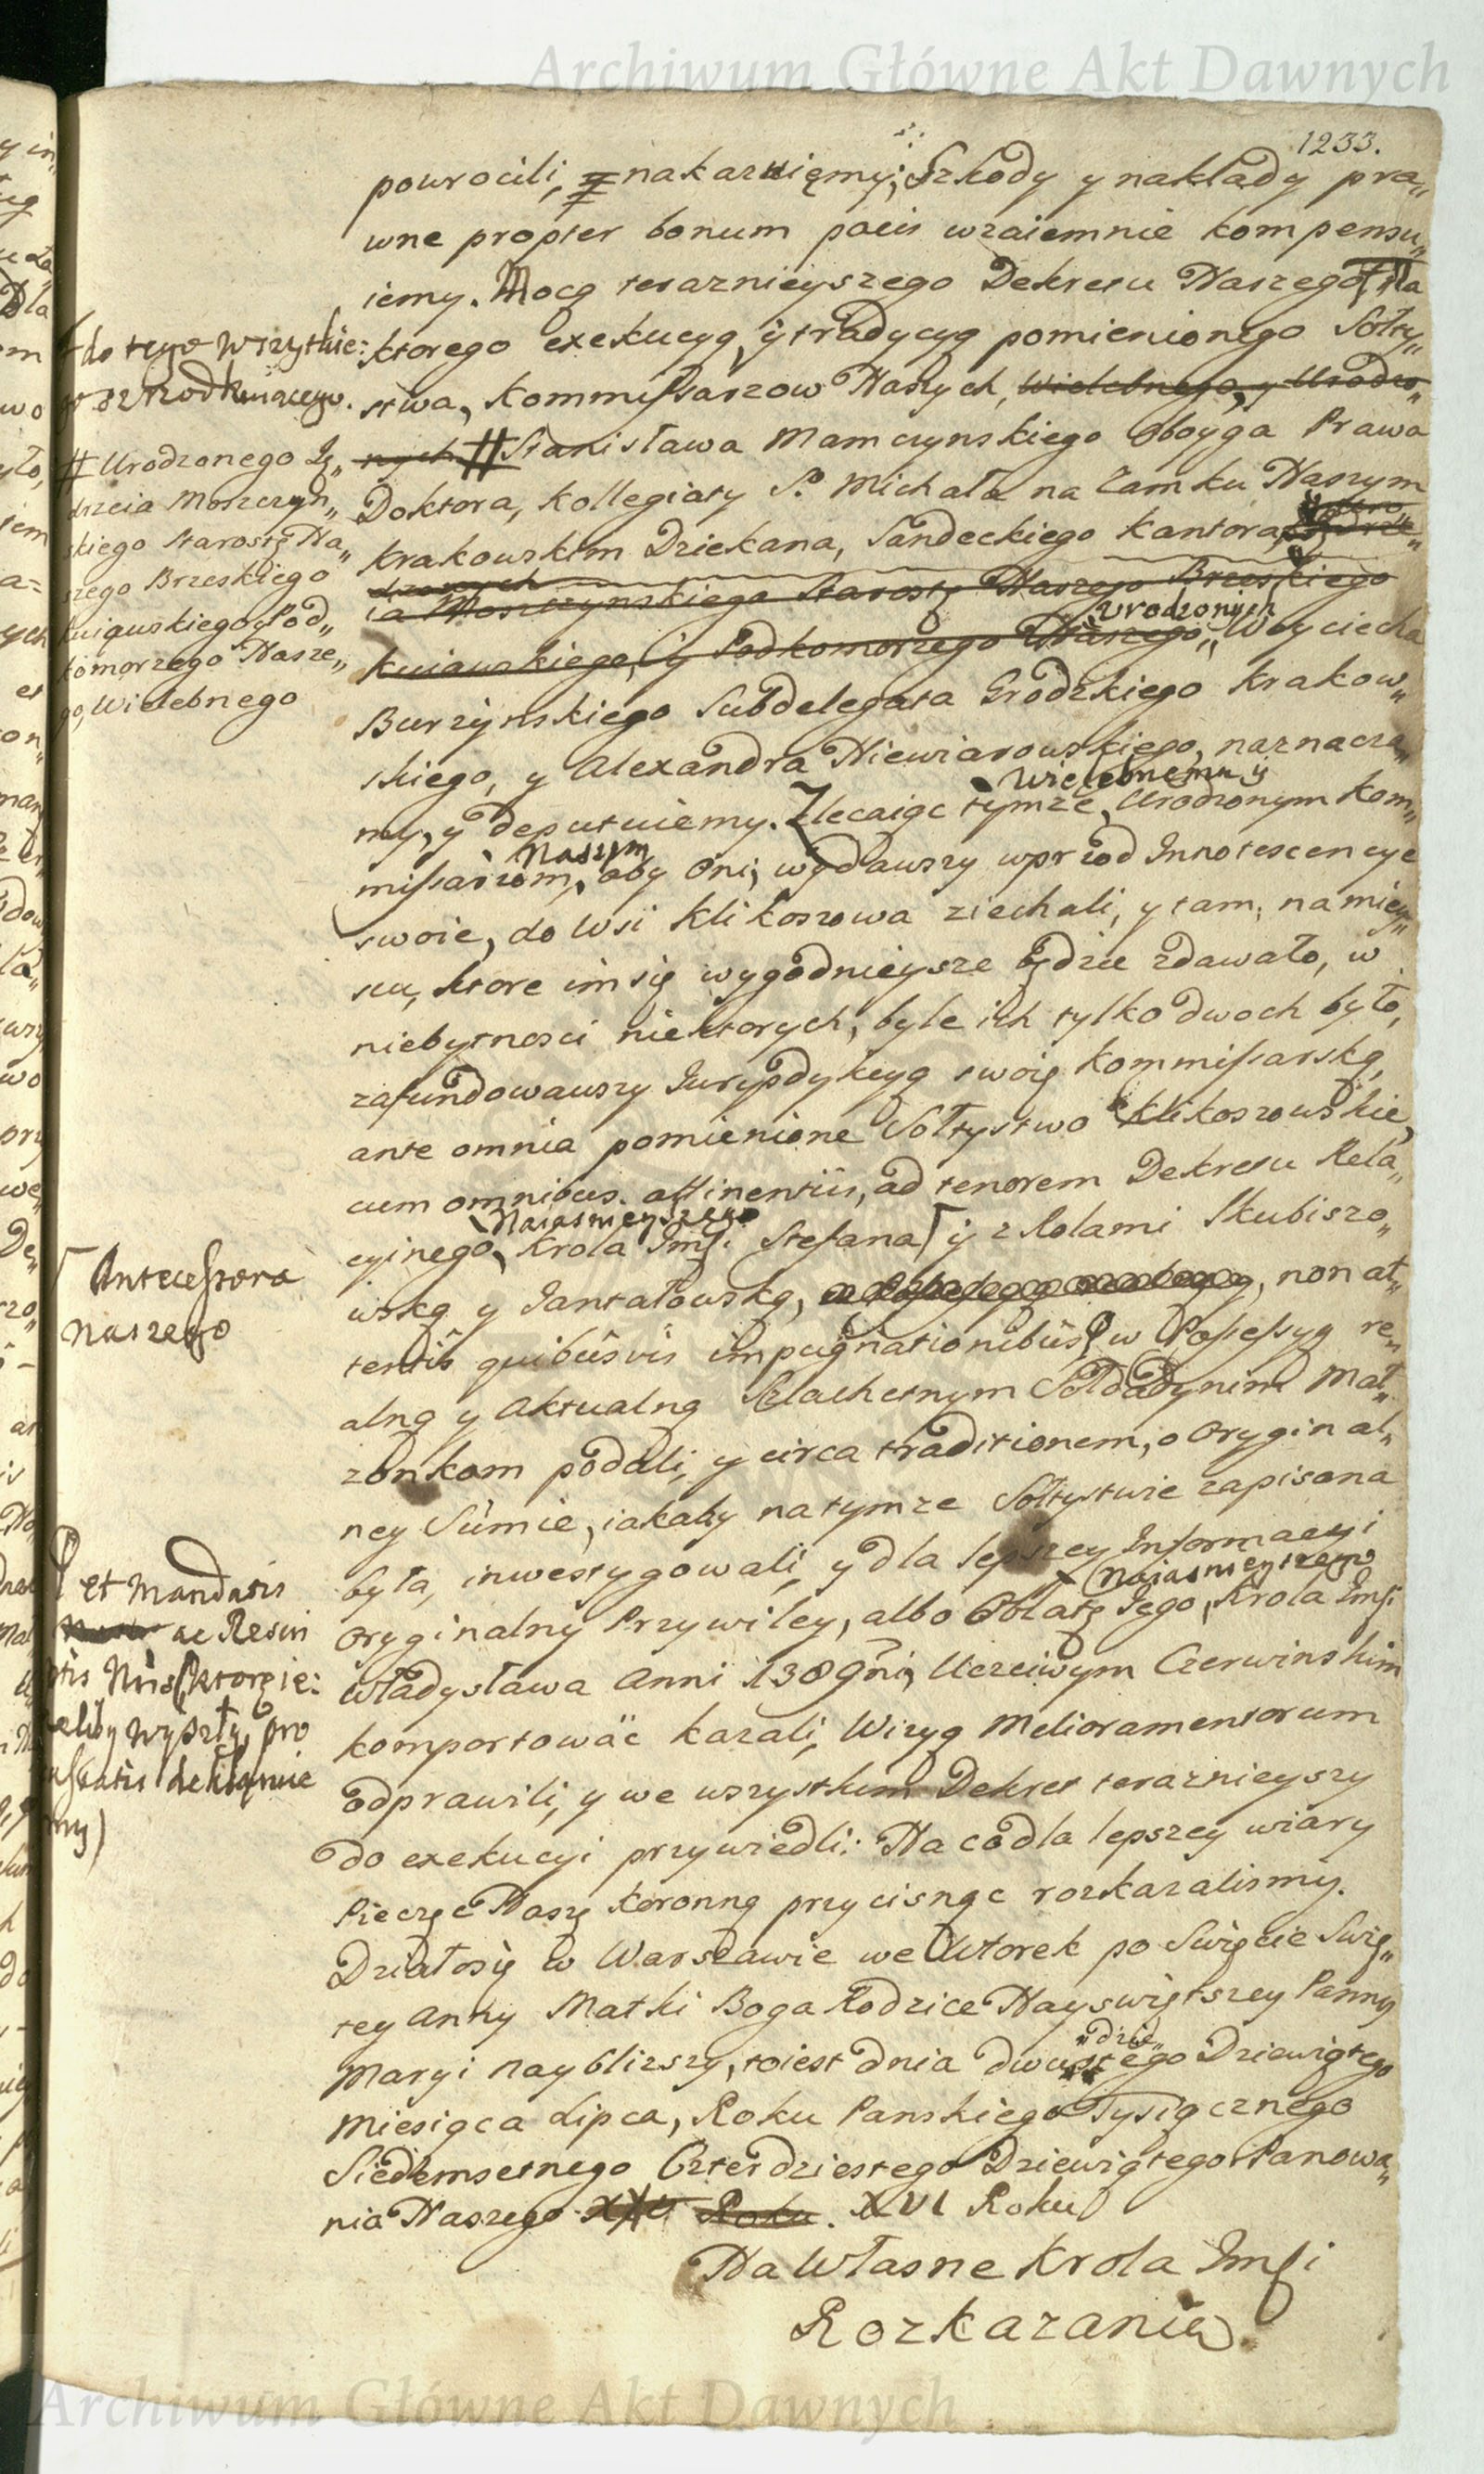 Archiwum Główne Akt Dawnych
1233.
powrocili, nakazuięmy; Szkody y nakłady pra„
wne propter bonum pacis wzaiemnie kompensu„
iemy. Mocą teraznieyszego Dekretu Naszego, dla
ktorego exekucyą, y tradycyą pomienionego Sołty„
stwa, Kommissarzow Naszych, Wielebnego, y Urodzo„
nych # Stanisława Mamczynskiego Oboyga Prawa
Doktora, Kollegiaty S. Michała na Zamku Naszym
Krakowskim Dziekana, Sandeckiego Kantora,
ia Moszczynskiego Starosty Naszego Brzeskiego
Urodzonych
Kuiawskiego, y Podkomorzego Naszego, Woyciecha
Burzynskiego Subdelegata Grodzkiego Krakow„
skiego, y Alexandra Niewiarowskiego, naznacza„
Wielebnemu y
my, y deputuiemy. Zlecaiąc tymże, Urodzonym Kom„
Naszym
missarzom, aby Oni, wydawszy wprzod Innotescencye
swoie, do Wsi Klikoszowa ziechali, y tam, na miey„
scu, ktore im się wygodnieysze będzie zdawało, w
niebytnosci niektorych, byle ich tylko dwoch było,
zafundowawszy Juryzdykcyą swoię Kommissarską,
ante omnia pomienione Sołtystwo Klikoszowskie,
cum omnibus attinentiis, ad tenorem Dekretu Rela„
Naiasnieyszego
cyinego, Krola Jmsi Stefana y z Rolami Skubiszo„
wską y Jantałowską, non at„
tentis quibusvis impugnationibus, w Possessyą re„
alną y Aktualną Szlachetnym Sołdadynim Mał„
żonkom podali, y circa traditionem, o Oryginal„
ney Sumie, iakaby na tymże Sołtystwie zapisana
była, inwestygowali, y dla lepszey Informacyi
Naiasnieyszego
Oryginalny Przywiley, albo Oblatę Jego, Krola Jmsi
Władysława Anni 1389ni, Uczciwym Czerwinskim
komportować kazali, Wizyą Melioramentorum
odprawili, y we wszystkim Dekret terazniejszy
do exekucyi przywiedli: Na co dla lepszey wiary
Pieczęć Naszę Koronną przycisnąc rozkazalismy.
Działosię w Warszawie we Wtorek po Swięcie Swię„
tey Anny Matki Boga Rodzice Nayswiętszey Panny
„dzie„
Maryi naybliższy, toiest dnia dwustego Dziewiątego
Miesiąca Lipca, Roku Panskiego Tysiącznego
Siedemsetnego Czterdziestego Dziewiątego Panowa„
nia Naszego XVI Roku
Na Własne Krola Jmsi
Rozkazanie.
do tego Wszytkie:
# Urodzonego Ję„
drzeia Moszczyn„
skiego Starostę Na„
szego Brzeskiego
Kuiawskiego y Pod„
komorzego Nasze„
go, Wielebnego
Antecessora
Naszego
et Mandatis
ac Rescri
ptis Nris (ktorę ie:
żeliby wyszły, pro
cassatis deklaruie
my)
Archiwum Główne Akt Dawnych